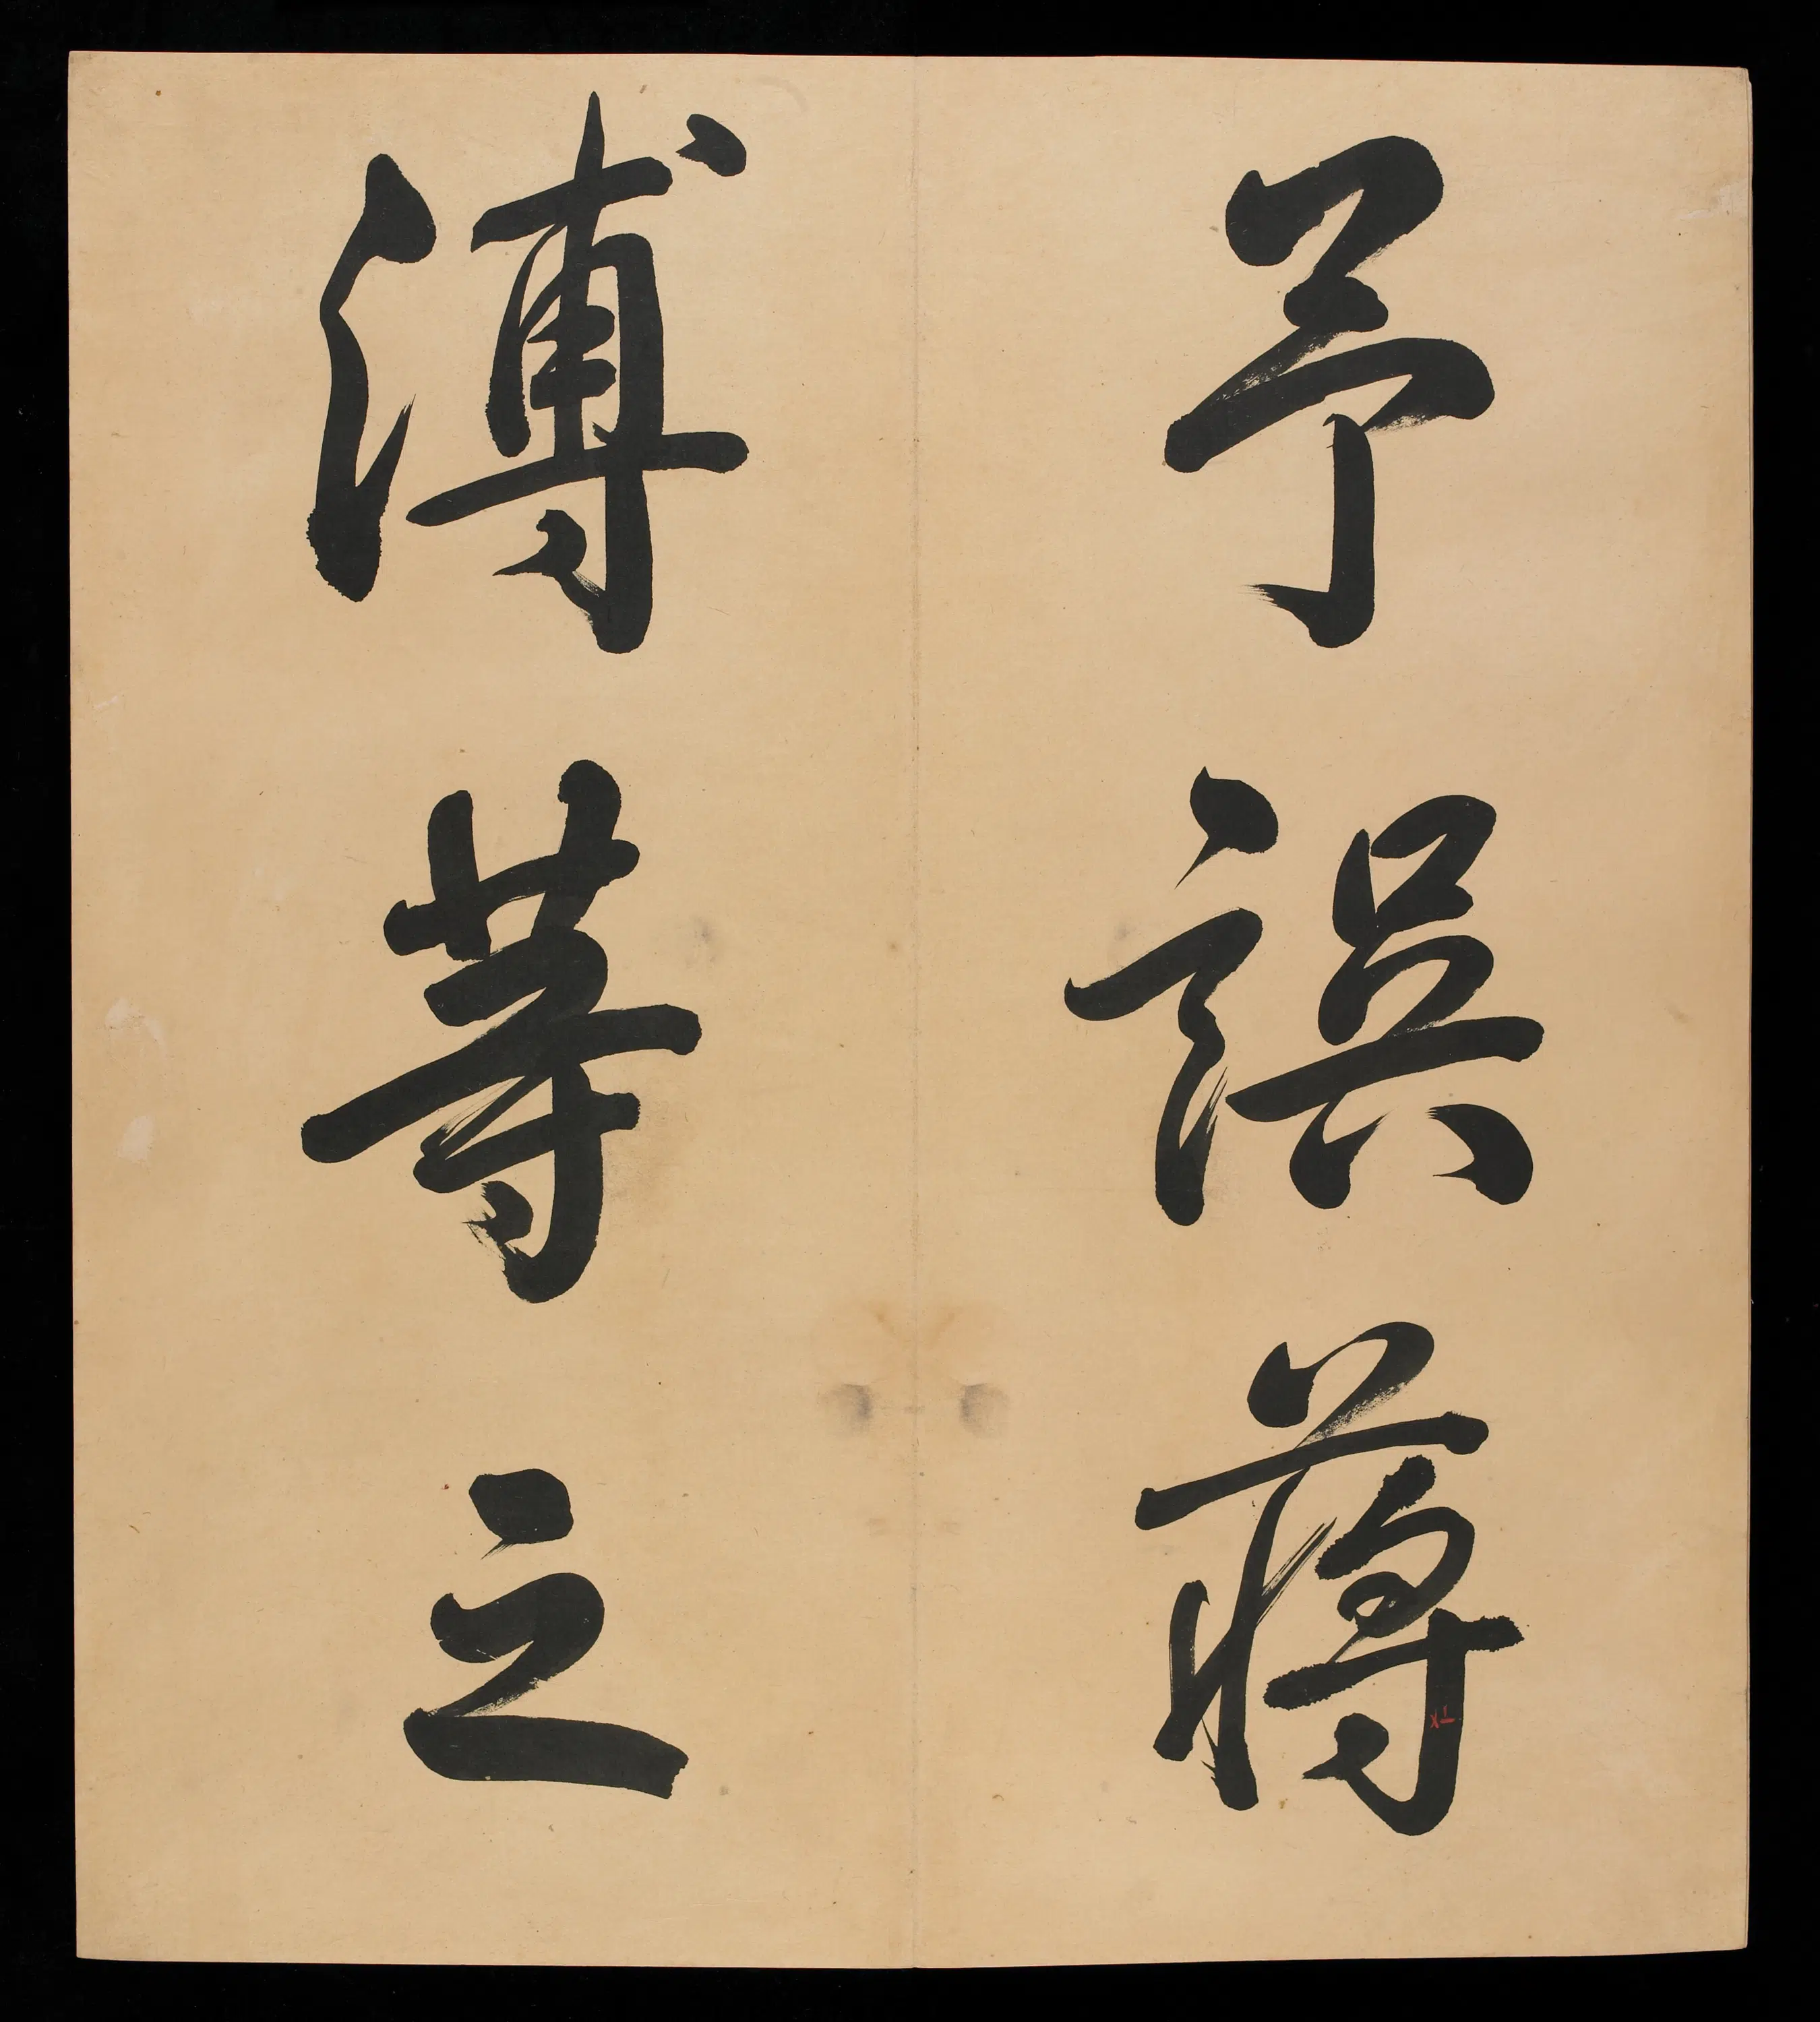 予誤蔣
溥等之